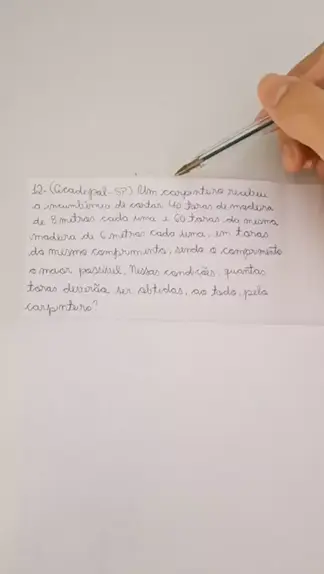 12. (Acadepol-SP) Um carpinteiro recebeu
a incumbência de cortar 40 toras de madeira
de 8 metros cada uma e 60 toras da mesma
madeira de 6 metros cada uma, em toras
do mesmo comprimento, sendo o comprimento
o maior possível. Nessas condições, quantas
toras deverão ser obtidas, ao todo, pelo
carpinteiro?